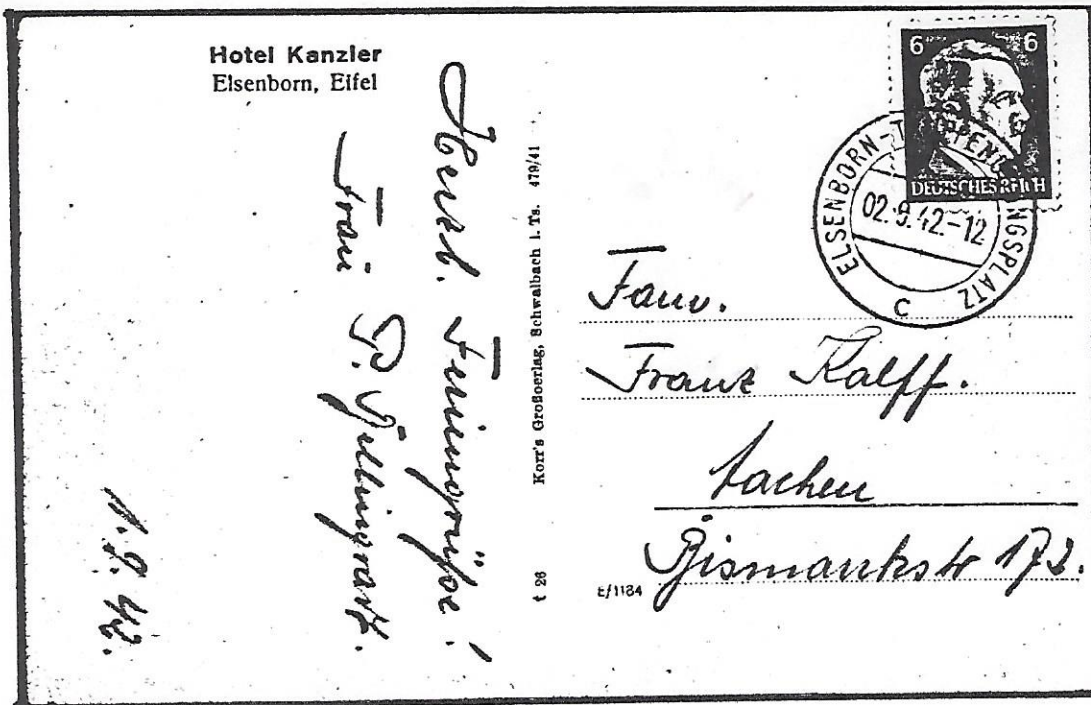 Hotel Kanzler
Elsenborn, Eifel
Herzl. Feriengrüße!
Frau P.
1.9.42.
Korr's Großoerlag, Schwalbach i. Ts. 479/41
t 26
6 6
DEUTSCHES REICH
ELSENBORN-TRUPPENÜBUNGSPLATZ
02.9.42.-12
c
Fam.
Franz Kalff.
Aachen
Bismarckstr 172.
E/1184